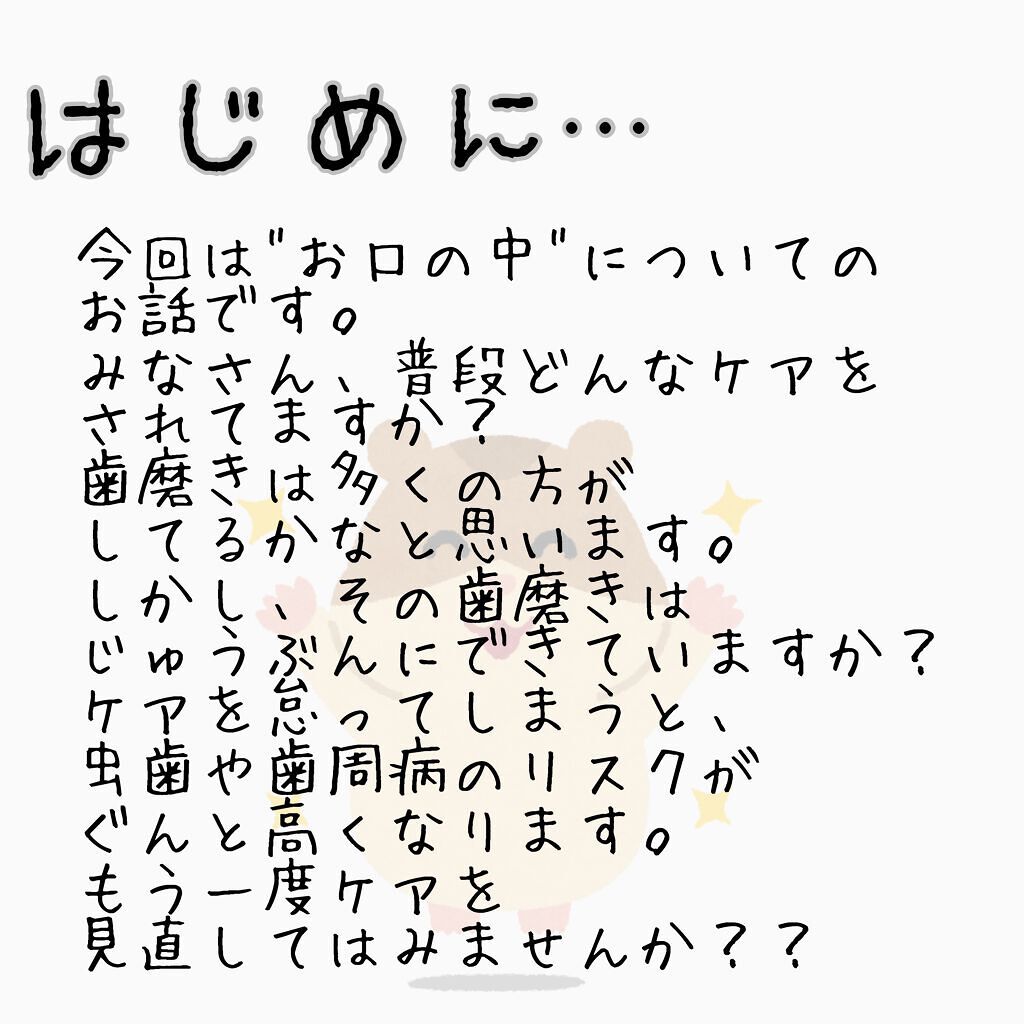 はじめに…
今回は"お口の中"についての
お話です。
みなさん、普段どんなケアを
されてますか?
歯磨きは多くの方が
してるかなと思います。
しかし、その歯磨きは
じゅうぶんにできていますか?
ケアを怠ってしまうと、
虫歯や歯周病のリスクが
ぐんと高くなります。
もう一度ケアを
見直してはみませんか??